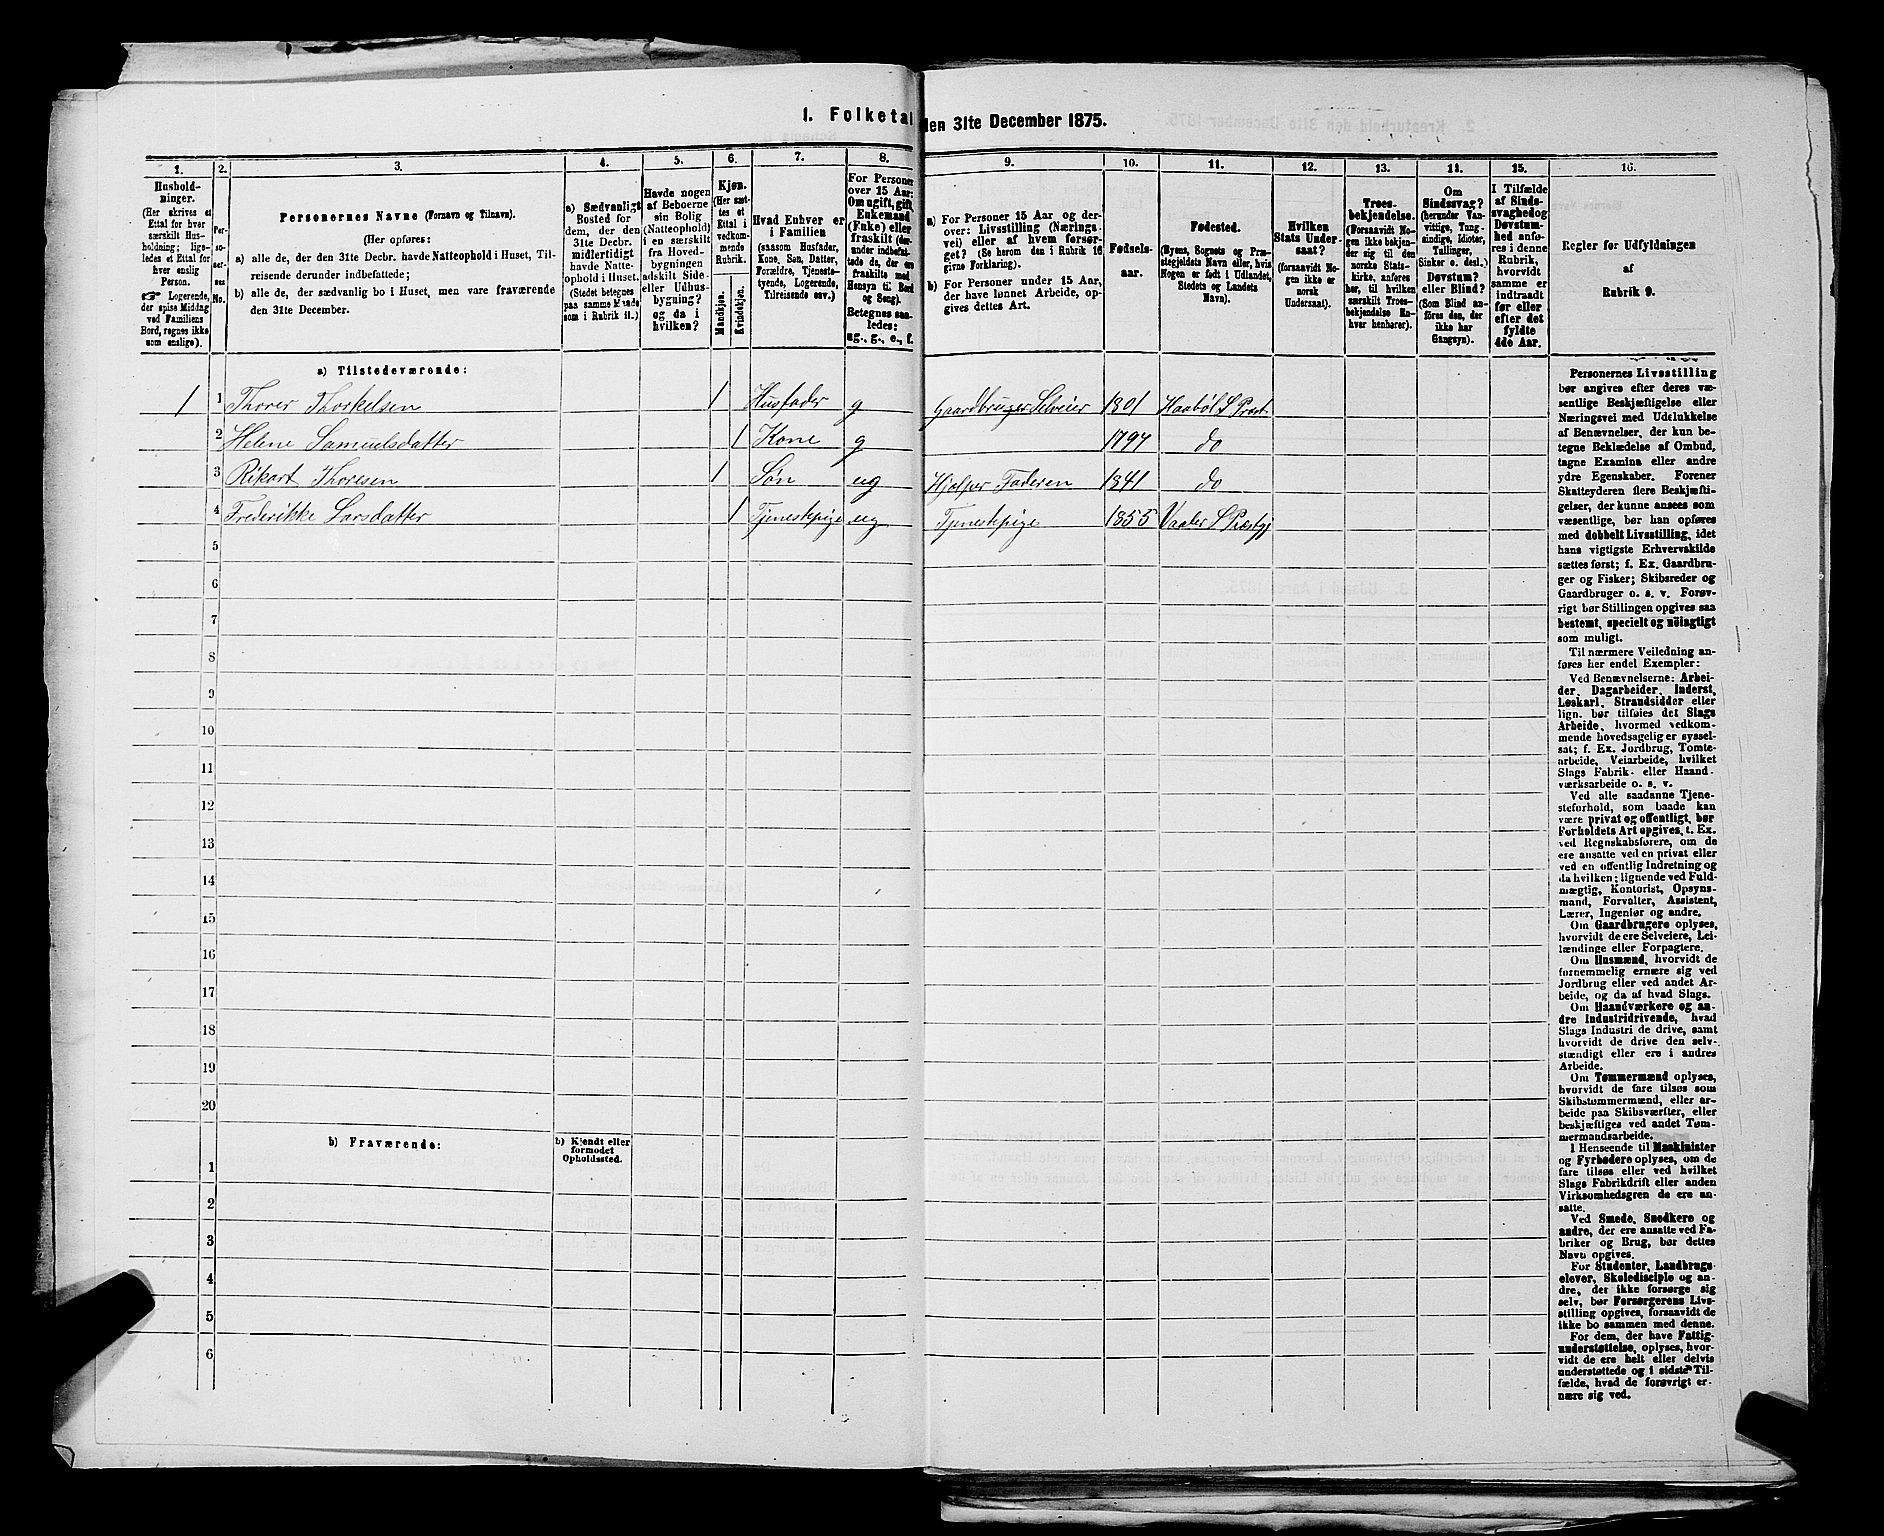 1. Folketal den 31te December 1875.
1. 2. 3. 4. 5. 6. 7. 8. 9. 10. 11. 12. 13. 14. 15. 16.
Hushold-
ninger.
(Her skrives et
Ettal for hver
særskilt Hus-
holdning; lige-
ledes et Ettal for
hver enslig
Person.
☞ Logerende,
der spise Middag
ved Familiens
Bord, regnes ikke
som enslige).
Per-
so-
ner-
nes
No.
Personernes Navne (Fornavn og Tilnavn).
(Her opføres:
a) alle de, der den 31te Decbr. havde Natteophold i Huset, Til-
reisende derunder indbefattede;
b) alle de, der sædvanlig bo i Huset, men vare fraværende
den 31te December.
a) Sædvanligt
Bosted for
dem, der den
31te Decbr.
midlertidigt
havde Natte-
ophold i Huset.
(Stedet betegnes
paa samme Maade,
som i Rubrik 11.)
Havde nogen
af Beboerne
sin Bolig
(Natteophold)
i en særskilt
fra Hoved-
bygningen
adskilt Side-
eller Udhus-
bygning?
og da i
hvilken?
Kjøn.
(Her sæt-
tes et
Ettal i
vedkom-
mende
Rubrik.
Mandkjøn.
Kvindekjøn.
Hvad Enhver er
i Familien
(saasom Husfader,
Kone, Søn, Datter,
Forældre, Tjeneste-
tyende, Logerende,
Tilreisende osv.)
For Personer
over 15 Aar:
Om ugift, gift,
Enkemand
(Enke) eller
fraskilt (der-
under indbefat-
tede da, der ere
fraskilte med
Hensyn til Bord
og Seng).
Betegnes saa-
ledes:
ug., g., e., f.
a) For Personer 15 Aar og der-
over: Livsstilling (Nærings-
vei) eller af hvem forsør-
get? (Se herom den i Rubrik 16
givne Forklaring).
b) For Personer under 15 Aar,
der have lønnet Arbeide, op-
gives dettes Art.
Fødsels-
aar.
Fødested.
(Byens, Sognets og Præ-
stegjeldets Navn eller, hvis
Nogen er født i Udlandet,
Stedets og Landets
Navn).
Hvilken
Stats Under-
saat?
(forsaavidt No-
gen ikke er
norsk
Undersaat).
Troes-
bekjendelse.
(Forsaavidt No-
gen ikke bekjen-
der sig til den
norske Stats-
kirke, anføres
her, til hvilken
særskilt Troes-
bekjendelse En-
hver henhører).
Om
Sindssvag?
(herunder Van-
vittige, Tung-
sindige, Idioter,
Tullinger,
Sinker o. desl.)
Døvstum?
eller Blind?
(Som Blind an-
føres den, der
ikke har
Gangsyn).
I Tilfælde
af Sinds-
svaghed og
Døvstum-
hed anfø-
res i denne
Rubrik,
hvorvidt
samme er
indtraadt
før eller
efter det
fyldte
4de Aar.
Regler for Udfyldningen
af
Rubrik 9.
a) Tilstedeværende:
1 1 Thorer Thorkelsen 1 Husfader g Gaardbruger Selveier 1801 Haabøl S Præst.
2 Helene Samuelsdatter 1 Kone g 1794 do
3 Rikart Thoresen 1 Søn ug Hjelper Faderen 1841 do
4 Frederikke Larsdatter 1 Tjenestepige ug Tjenestepige 1855 Vaaler S Præstgj
5
6
7
8
9
10
11
12
13
14
15
16
17
18
19
20
b) Fraværende:
b) Kjendt eller
formodet
Opholdssted.
1
2
3
4
5
6
Personernes Livsstilling
bør angives efter deres væ-
sentlige Beskjæftigelse eller
Næringsvei med Udelukkelse
af Benævnelser, der kun be-
tegne Beklædelse af Ombud,
tagne Examina eller andre
ydre Egenskaber. Forener
Skatteyderen flere Beskjæfti-
gelser, der kunne ansees som
væsentlige, bør han opføres
med dobbelt Livsstilling, idet
hans vigtigste Erhvervskilde
sættes først; f. Ex. Gaardbru-
ger og Fisker; Skibsreder og
Gaardbruger o. s. v. Forøv-
rigt bør Stillingen opgives saa
bestemt, specielt og nøiagtigt
som muligt.
Til nærmere Veiledning an-
føres her endel Exempler:
Ved Benævnelserne: Arbei-
der, Dagarbeider, Inderst,
Løskarl, Strandsidder eller
lign. bør tilføies det Slags
Arbeide, hvormed vedkom-
mende hovedsagelig er syssel-
sat; f. Ex. Jordbrug, Tomte-
arbeide, Veiarbeide, hvilket
Slags Fabrik- eller Haand-
værksarbeide o. s. v.
Ved alle saadanne Tjene-
steforhold, som baade kan
være privat og offentligt, bør
Forholdets Art opgives, t. Ex.
ved Regnskabsførere, om de
ere ansatte ved en privat eller
ved en offentlig Indretning og
da hvilken; lignende ved Fuld-
mægtig, Kontorist, Opsyns-
mand, Forvalter, Assistent,
Lærer, Ingeniør og andre.
Om Gaardbrugere oplyses,
hvorvidt de ere Selveiere, Lei-
lændinge eller Forpagtere.
Om Husmænd, hvorvidt de
fornemmelig ernære sig ved
Jordbrug eller ved andet Ar-
beide, og da af hvad Slags.
Om Haandværkere og an-
dre Industridrivende, hvad
Slags Industri de drive, samt
hvorvidt de drive den selv-
stændigt eller ere i andres
Arbeide.
Om Tømmermænd oplyses,
hvorvidt de fare tilsøs som
Skibstømmermænd, eller ar-
beide paa Skibsværfter, eller
beskjæftiges ved andet Tøm-
mermandsarbeide.
I Henseende til Maskinister
og Fyrbødere oplyses, om de
fare tilsøs eller ved hvilket
Slags Fabrikdrift eller anden
Virksomhedsgren de ere an-
satte.
Ved Smede, Snedkere og
andre, der ere ansatte ved Fa-
briker og Brug, bør dettes
Navn opgives.
For Studenter, Landbrugs-
elever, Skoledisciple og an-
dre, der ikke forsørge sig
selv, bør Forsørgerens Livs-
stilling opgives, forsaavidt de
ikke bo sammen med denne.
For dem, der have Fattig-
understøttelse, oplyses, hvor-
vidt de ere helt eller delvis
understøttede og i sidste Til-
fælde, hvad de forøvrigt er-
nære sig ved.